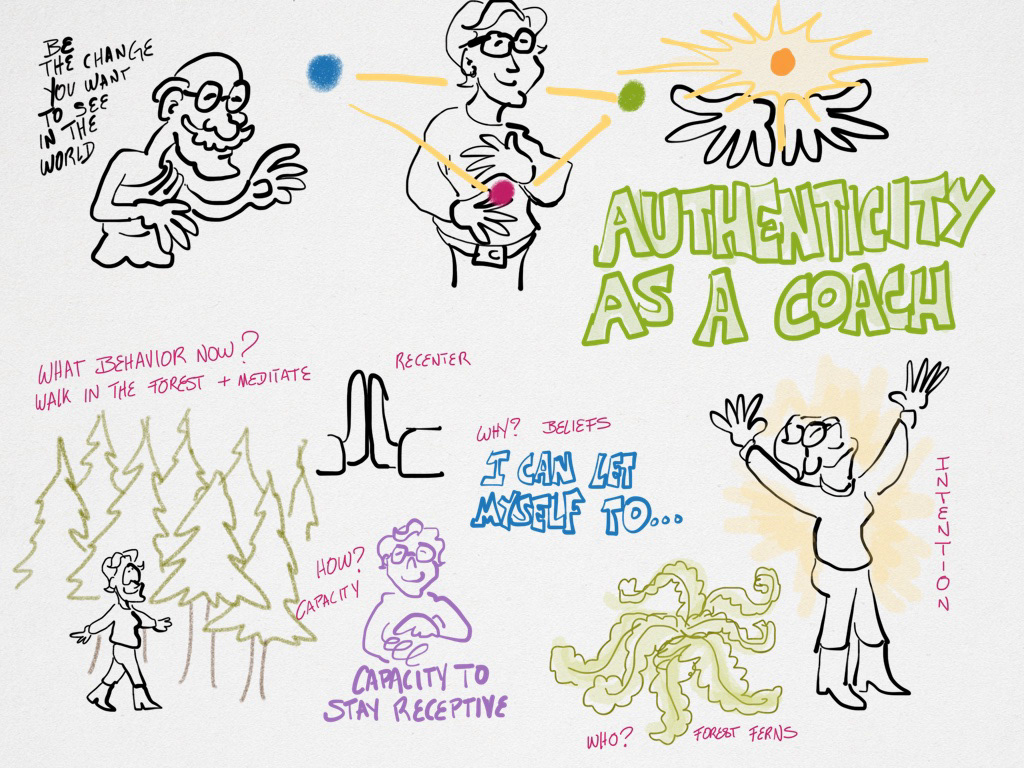 BE
THE CHANGE
YOU WANT
TO SEE
IN THE
WORLD
AUTHENTICITY
AS A COACH
WHAT BEHAVIOR NOW?
WALK IN THE FOREST + MEDITATE
RECENTER
WHY? BELIEFS
I CAN LET
MYSELF TO...
INTENTION
HOW?
CAPACITY
CAPACITY TO
STAY RECEPTIVE
WHO? FOREST FERNS